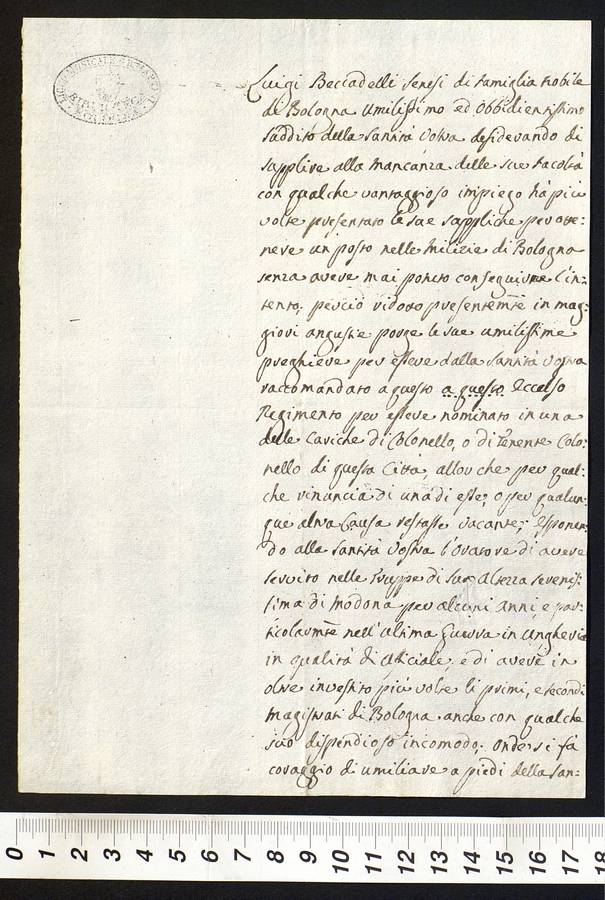 LICEO MUSICALE
BIBLIOTECA
Luigi Beccadelli Senesi di Famiglia Nobile
di Bologna Umilissimo ed Obbidientissimo
Suddito della Santità Vostra desiderando di
supplire alla mancanza delle sue facoltà
con qualche vantaggioso impiego hà più
volte presentato le sue suppliche per otte:
nere un posto nelle Milizie di Bologna
senza avere mai potuto conseguirne l'in:
tento; perciò ridotto presentemte in mag:
giori angustie porge le sue umilissime
preghiere per essere dalla Santità Vostra
raccomandato a questo a questo Eccelso
Regimento per essere nominato in una
delle Cariche di Colonello, o di Tenente Colo:
nello di questa Città, allor che per qual:
che rinuncia di una di esse, o per qualun:
que altra Causa restasse vacante; Esponen:
do alla Santità Vostra l'Oratore di avere
servito nelle Truppe di Sua Altezza Serenis:
sima di Modona per alcuni Anni, e par:
ticolarmte nell'ultima Guerra in Ungheria
in qualità di Officiale, e di avere in
oltre investito più volte li primi, e secondi
Magistrati di Bologna anche con qualche
suo dispendioso incomodo; Onde si fà
coraggio di umiliare a piedi della San:
0 1 2 3 4 5 6 7 8 9 10 11 12 13 14 15 16 17 18